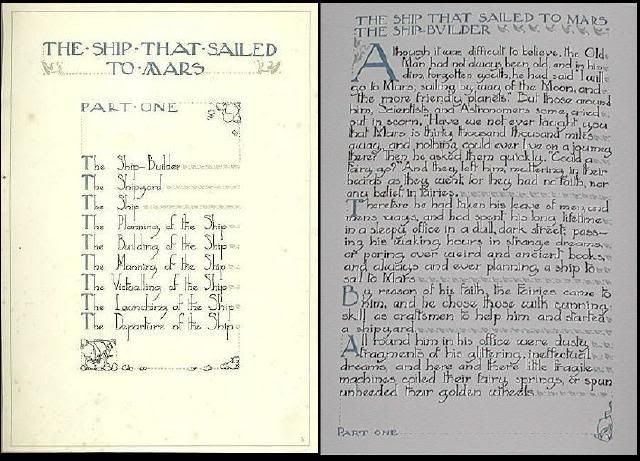 THE·SHIP·THAT·SAILED
TO·MARS
PART·ONE
The Ship-Builder
The Shipyard
The Ship
The Planning of the Ship
The Building of the Ship
The Manning of the Ship
The Victualling of the Ship
The Launching of the Ship
The Departure of the Ship
THE SHIP THAT SAILED TO MARS
THE SHIP-BUILDER
Although it was difficult to believe, the Old
Man had not always been old, and in his
dim, forgotten youth, he had said "I will
go to Mars, sailing by way of the Moon, and
the more friendly planets." But those around
him, Scientists and Astronomers some, cried
out in scorn, "Have we not ever taught you
that Mars is thirty thousand thousand miles
away, and nothing could ever live on a journey
there? Then he asked them quickly, "Could a
Fairy go?" And they left him, muttering in their
beards as they went, for they had no faith, nor
any belief in Fairies.
Therefore he had taken his leave of men and
mens ways, and had spent his long lifetime
in a sleepy office in a dull, dark street; pass-
ing his waking hours in strange dreams,
or poring over weird and ancient books,
and always and ever planning, a ship to
sail to Mars.
By reason of his faith, the Fairies came to
him, and he chose those with cunning
skill as craftsmen to help him and started
a shipyard.
All round him in his office were dusty
fragments of his glittering, ineffectual
dreams, and here and there little fragile
machines coiled their fairy springs, or spun
unheeded their golden wheels.
PART ONE